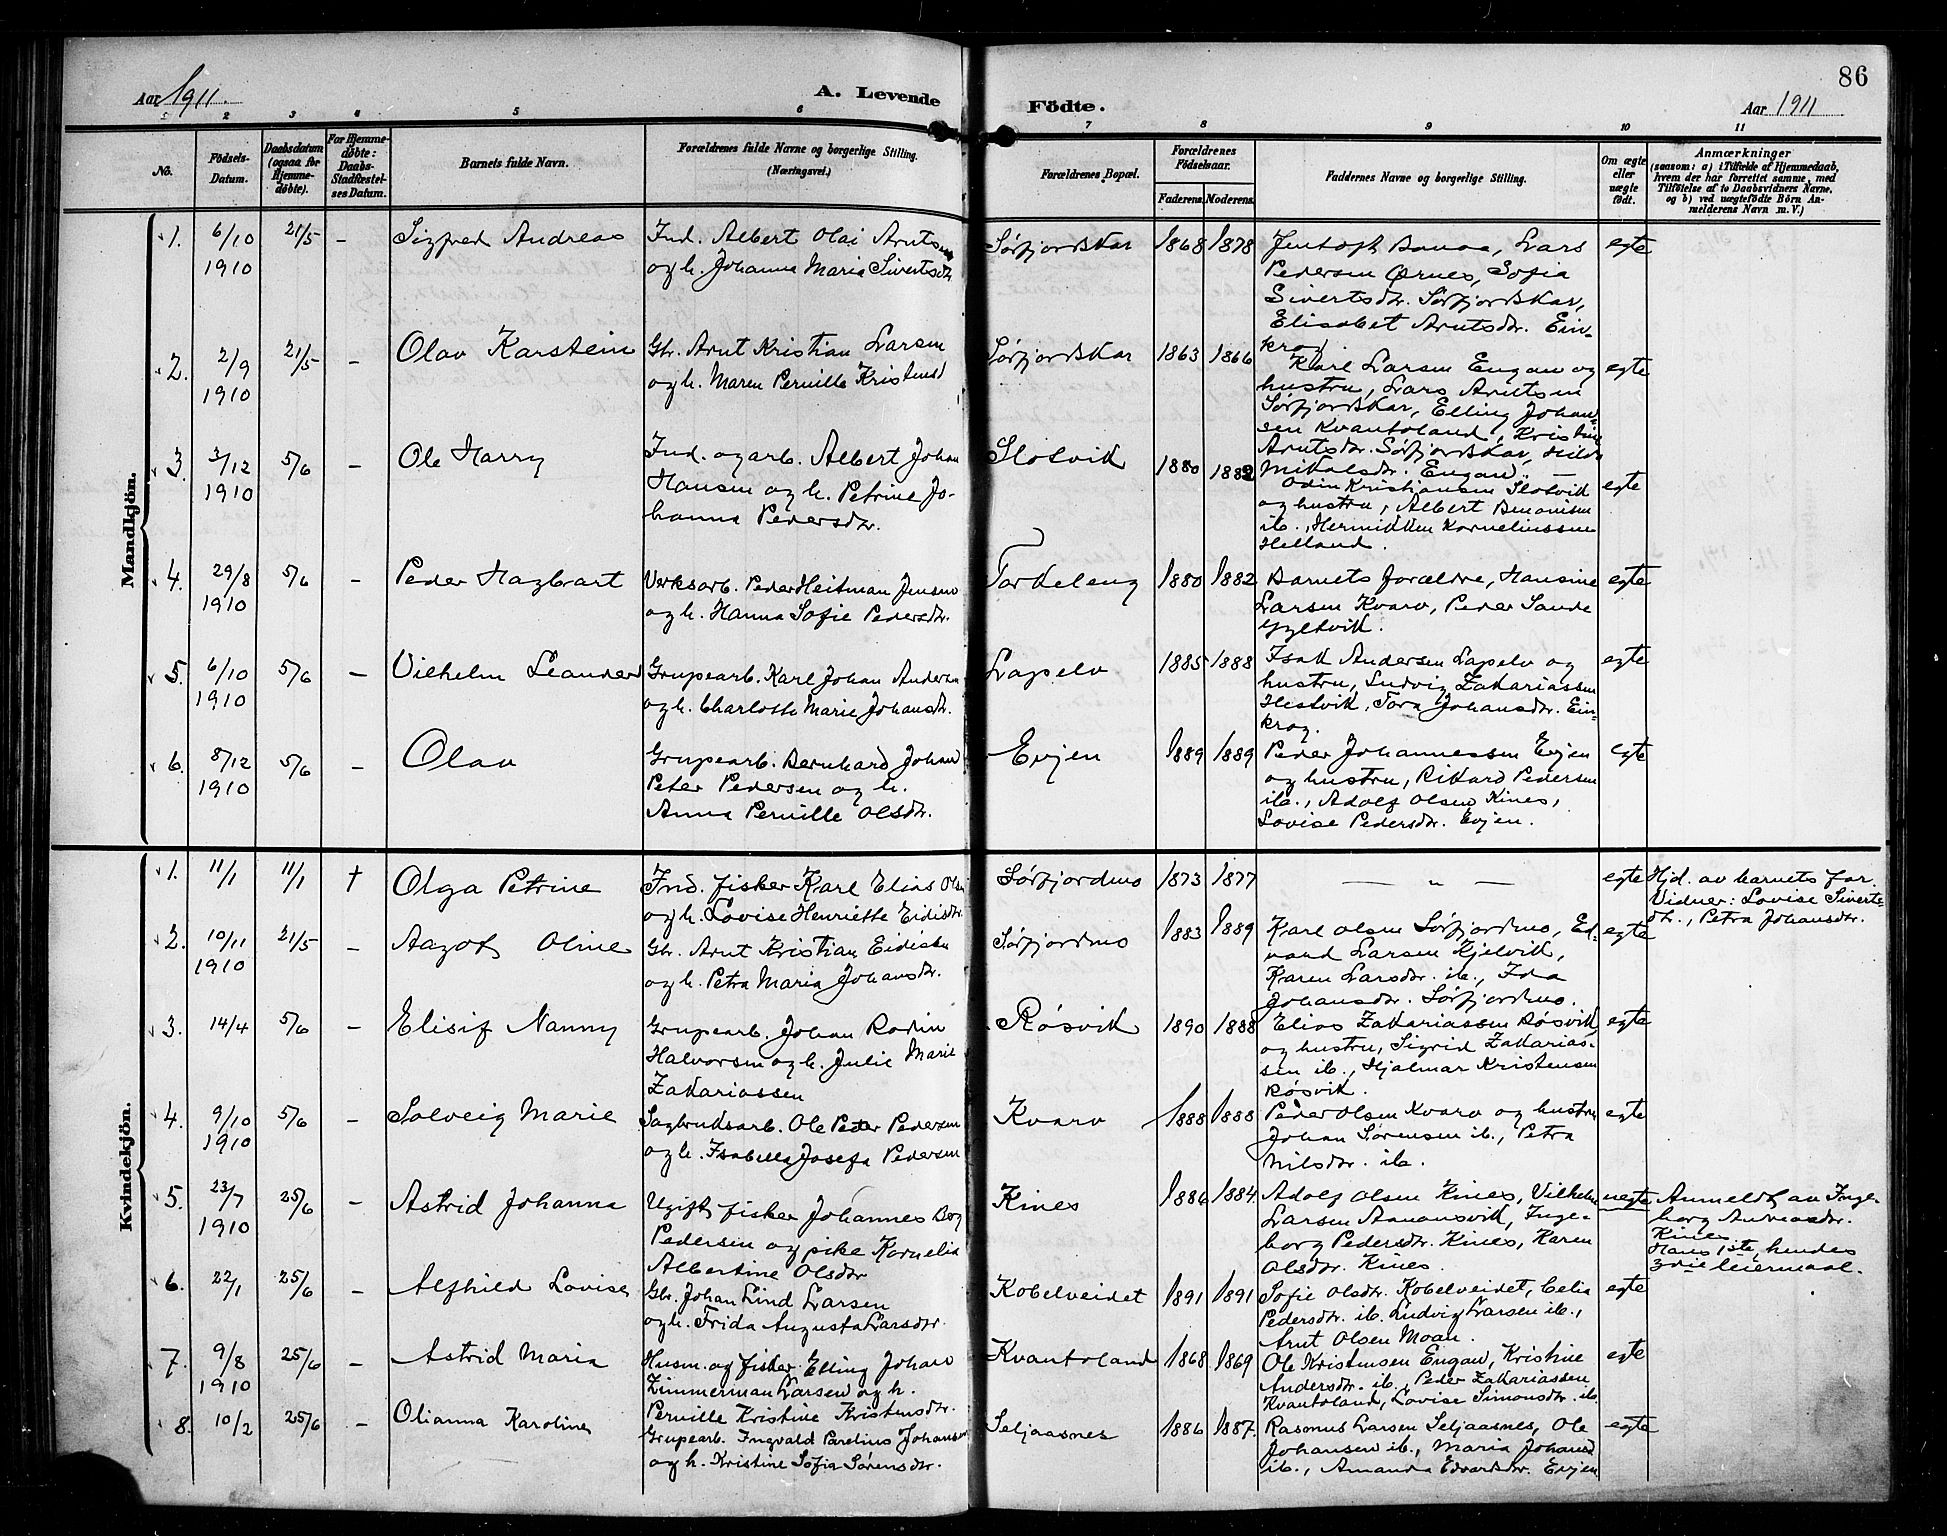 86
Aar 1911.
A. Levende Födte.
Aar 1911
1 2 3 4 5 6 7 8 9 10 11
No.
Födsels-Datum.
Daabsdatum (ogsaa for Hjemme-døbte).
For Hjemme-døbte: Daabs-Stadfæstel-ses Datum.
Barnets fulde Navn.
Forældrenes fulde Navne og borgerlige Stilling.
(Næringsvei.)
Forældrenes Bopæl.
Forældrenes Födselsaar.
Faderens. Moderens.
Faddernes Navne og borgerlige Stilling.
Om ægte eller uægte født.
Anmærkninger
(saasom: a) i Tilfælde af Hjemmedaab,
hvem der har forrettet samme, med
Tilföielse af to Daabsvidners Navne,
og b) ved uægtefödte Börn An-
melderens Navn m. V.)
Mandkjön.
1. 6/10 1910 21/5 - Sigfred Andreas
Ind. Albert Olai Arntsen
og h. Johanna Maria Sivertsdtr.
Sørfjordskar 1868 1878
Jentoft Banaa, Lars
Pedersen Ørnes, Sofia
Sivertsdtr. Sørfjordskar,
Elisabet Arntsdtr. Ein-
krog.
egte
2. 2/9 1910 21/5 - Olav Karstein
Gbr. Arnt Kristian Larsen
og h. Maren Pernille Kristensd
Sørfjordskar 1863 1866
Karl Larsen Engan og
hustru, Lars Arntsen
Sørfjordskar, Elling Johan-
sen Kvantoland, Kristine
Arntsdtr. Sørfjordskar, Hilda
Mikalsdtr. Engan.
egte
3. 3/12 1910 5/6 - Ole Harry
Ind. og arb. Albert Johan
Hansen og h. Petrine Jo-
hanna Pedersdtr.
Slotvik 1880 1882
Odin Kristiansen Slotvik
og hustru, Albert Benonisen
ib., Hermikken Korneliussen
Helland.
egte
4. 29/8 1910 5/6 - Peder Hagbart
Verksarb. Peder Heitman Jensen
og h. Hanna Sofie Pedersdtr.
Torkeleng 1880 1882
Barnets forældre, Hansine
Larsen Kvarv, Peder Sande
Gyltvik.
egte
5. 6/10 1910 5/6 - Vilhelm Leander
Grupearb. Karl Johan Andersen
og h. Charlotte Marie Johansdtr.
Lapelv 1885 1888
Isak Andersen Lapelv og
hustru, Ludvig Zakariassen
Hestvik, Tora Johansdtr. Ein-
krog.
egte
6. 8/12 1910 5/6 - Olav
Grupearb. Bernhard Johan
Peter Pedersen og h.
Anna Pernille Olsdtr.
Evjen 1889 1889
Peder Johannessen Evjen
og hustru, Rikard Pedersen
ib., Adolf Olsen Kines,
Lovise Pedersdtr. Evjen.
egte
Kvindekjön.
1. 11/1 11/1 † Olga Petrine
Ind. fisker Karl Elias Olsen
og h. Lovise Henriette Eidisdtr.
Sørfjordmo 1873 1877
— „ —
egte
Hjd. av barnets far.
Vidner: Lovise Siverts-
dtr., Petra Johansdtr.
2. 10/11 1910 21/5 - Aagot Oline
Gbr. Arnt Kristian Eidissen
og h. Petra Maria Johansdtr.
Sørfjordmo 1883 1889
Karl Olsen Sørfjordmo, Ed-
vard Larsen Kjelvik,
Karen Larsdtr. ib., Ida
Johansdtr. Sørfjordmo.
egte
3. 14/4 5/6 - Elisif Nanny
Grupearb. Johan Rodin
Halvorsen og h. Julie Marie
Zakariassen
Røsvik 1890 1888
Elias Zakariassen Røsvik
og hustru, Sigrid Zakarias-
sen ib., Hjalmar Kristensen
Røsvik.
egte
4. 9/10 1910 5/6 - Solveig Marie
Sagbruksarb. Ole Peder Pedersen
og h. Isabella Josefa Pedersen
Kvarv 1888 1888
Peder Olsen Kvarv og hustru
Johan Sørensen ib., Petra
Nilsdtr. ib.
egte
5. 23/7 1910 25/6 - Astrid Johanna
Ugift fisker Johannes Berg
Pedersen og pike Kornelia
Albertine Olsdtr
Kines 1886 1884.
Adolf Olsen Kines, Vilhelm
Larsen Aanonsvik, Inge-
borg Pedersdtr. Kines, Karen
Olsdtr. Kines.
uegte
Anmeldt av Inge-
borg Andreasdtr.
Kines.
Hans 1ste, hendes
leiermaal.
6. 22/1 25/6 - Alfhild Lovise
Gbr. Johan Lind Larsen
og h. Frida Augusta Larsdtr.
Kobelveidet 1891 1891
Sofie Olsdtr. Kobelveidet, Celia
Pedersdtr. ib. Ludvig Larsen ib.,
Arnt Olsen Moan.
egte
7. 9/8 1910 25/6 - Astrid Maria
Husm. og fisker Elling Johan
Zimmerman Larsen og h.
Pernille Kristine Kristensdtr.
Kvantoland 1868 1869
Ole Kristensen Engan, Kristine
Andersdtr. ib., Peder Zakariassen
Kvantoland, Lovise Simonsdtr. ib.
egte
8. 10/2 25/6 - Olianna Karoline
Grupearb. Ingvald Parelius Johansen
og h. Kristine Sofia Sørensdtr.
Seljaasnes 1886 1887.
Rasmus Larsen Seljaasnes, Ole
Johansen ib., Maria Johansd
ib., Amanda Edvardsdtr. Evjen
egte